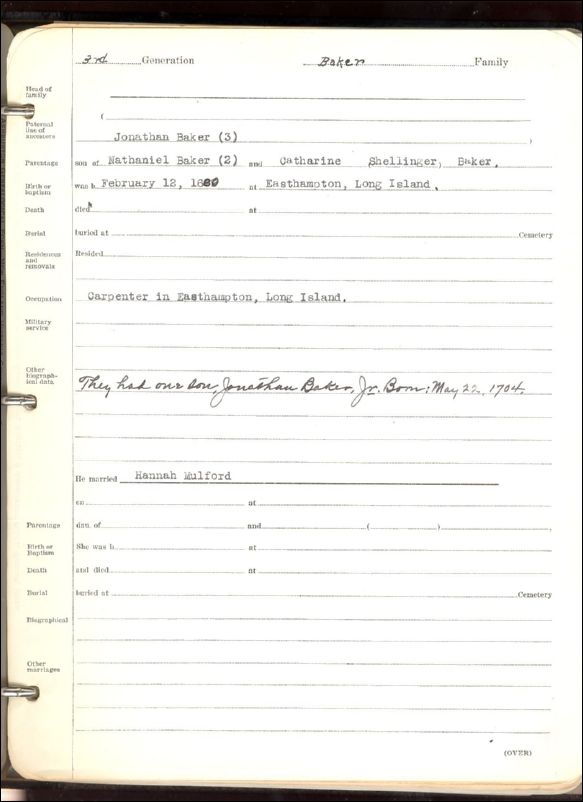 3rd Generation Baker Family
Head of family
(
Paternal line of ancestors
Jonathan Baker (3) )
Parentage son of Nathaniel Baker (2) and Catharine Shellinger, Baker.
Birth or baptism was b. February 12, 1680 at Easthampton, Long Island.
Death died at
Burial buried at Cemetery
Residences and removals Resided
Occupation Carpenter in Easthampton, Long Island.
Military service
Other biographical data
They had one son, Jonathan Baker, Jr. Born: May 22, 1704.
He married Hannah Mulford
on at
Parentage dau. of and ( )
Birth or Baptism She was b. at
Death and died at
Burial buried at Cemetery
Biographical
Other marriages
(OVER)